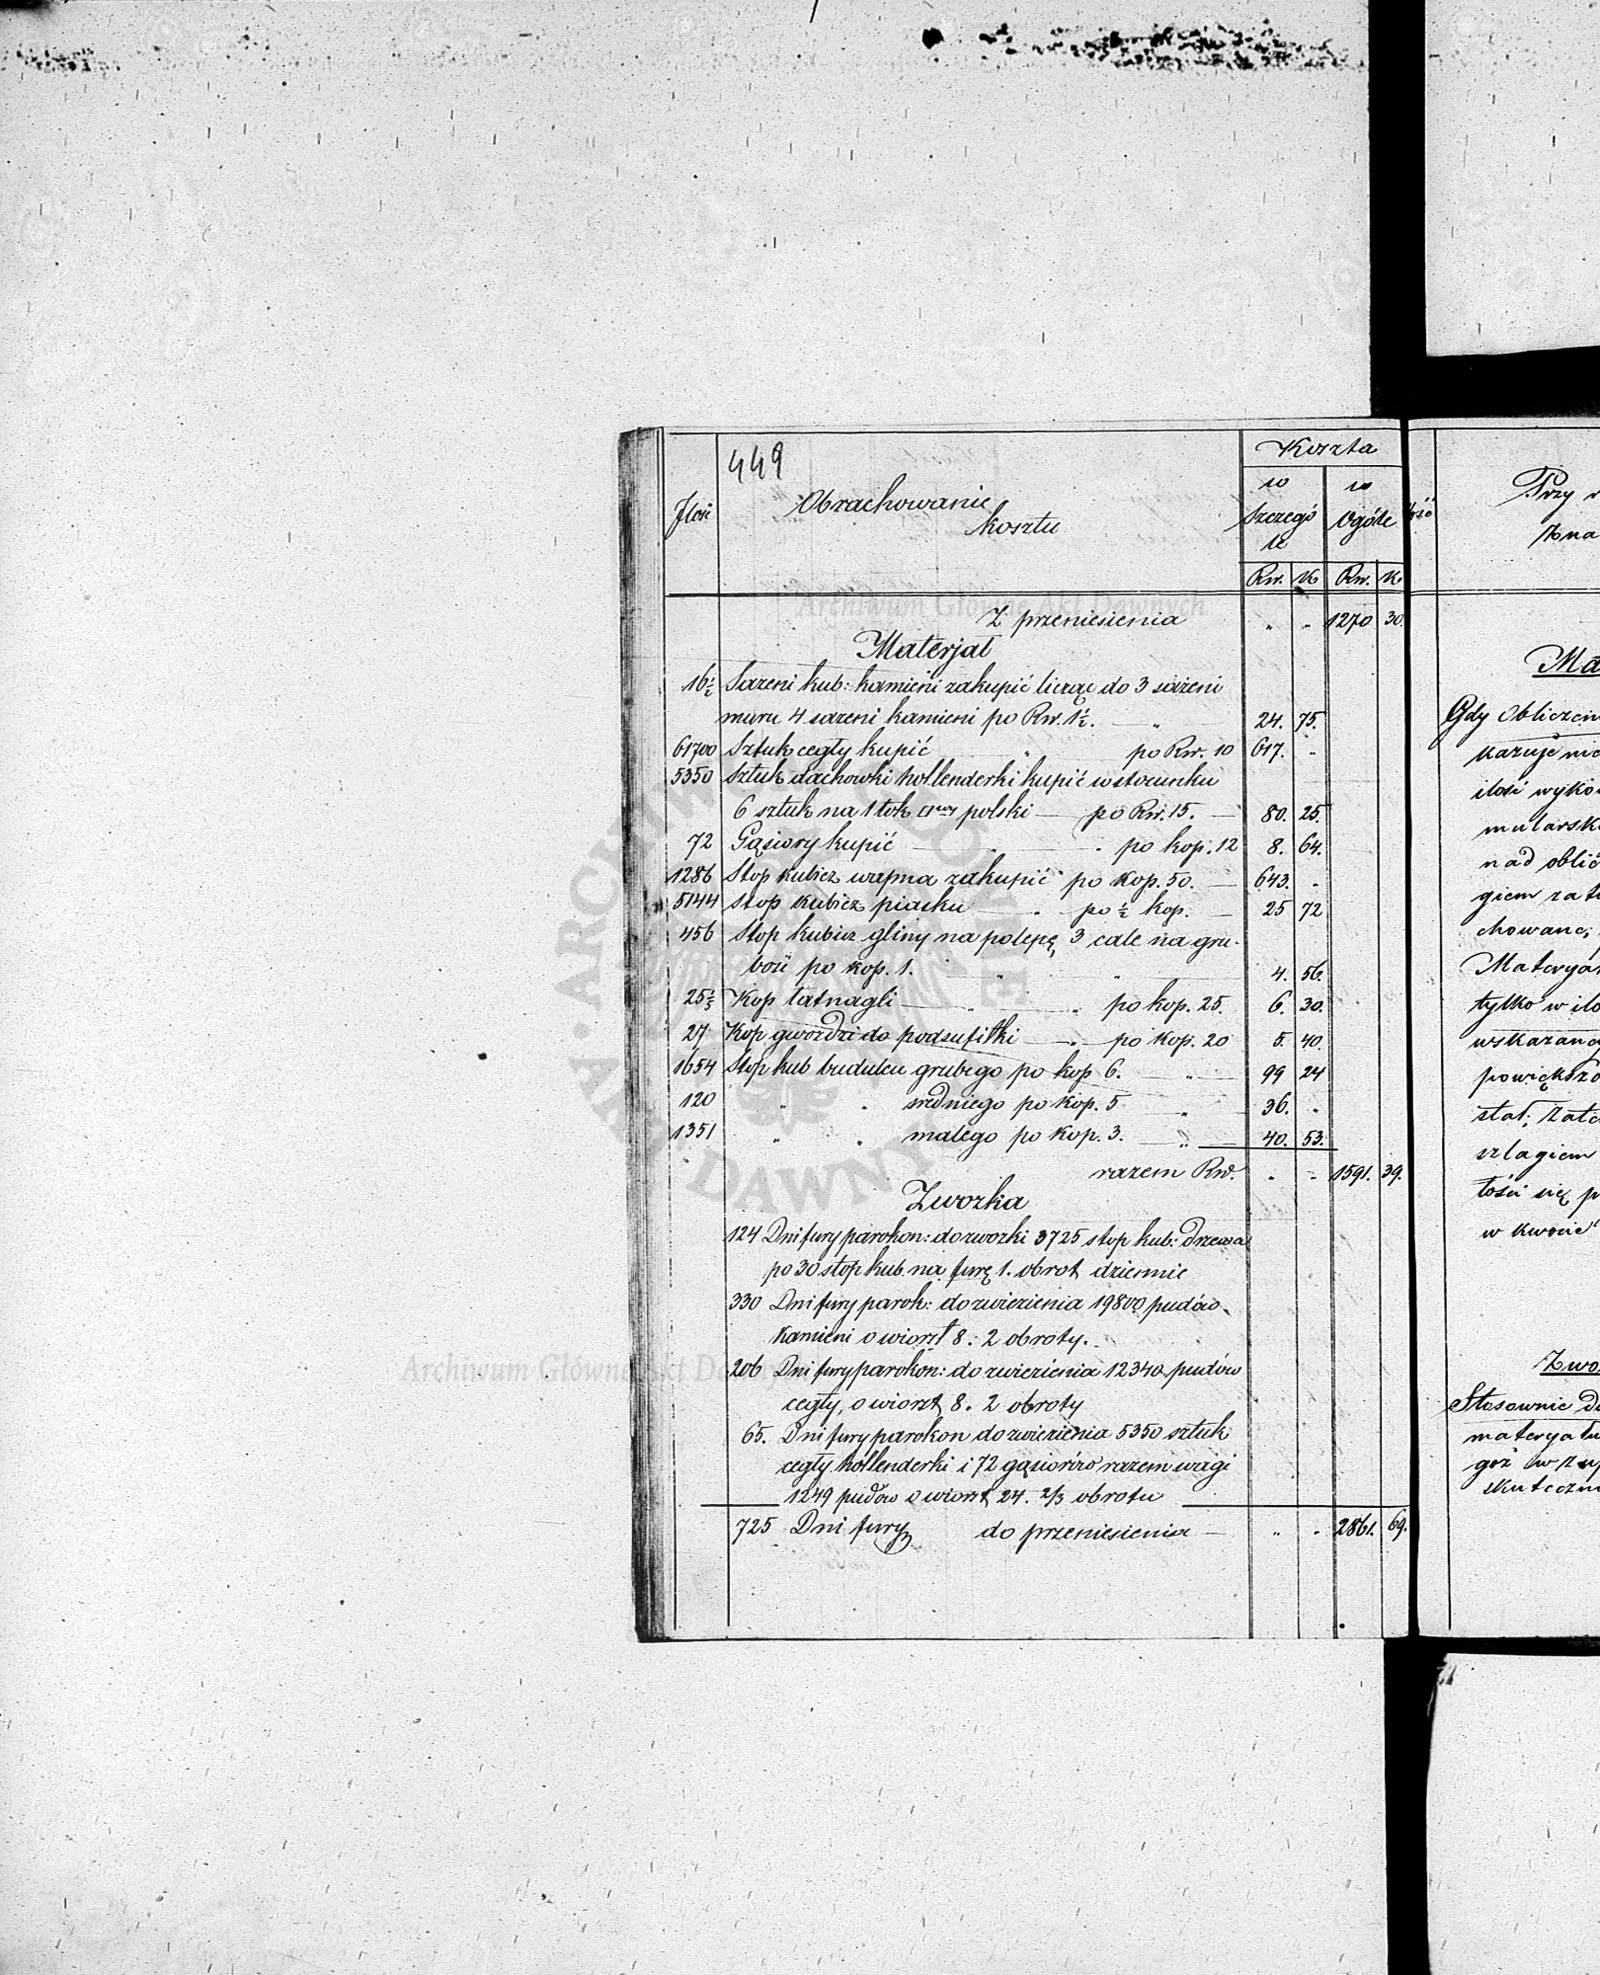 449
Ilość
Obrachowanie
kosztu
Koszta
w
Szczegó
le
w
Ogóle
Rw. K Rw. K
Z przeniesienia " " 1270 30.
Materjał
16½ Sążeni kub: kamieni zakupić licząc do 3 sążeni
muru 4 sążeni kamieni po Rw. 1½. — " 24. 75.
61700 Sztuk cegły kupić " po Rw. 10 617. "
5350 Sztuk dachówki hollenderki kupić w stosunku
6 sztuk na 1 łok □wy polski — po Rw. 15. — 80. 25.
72 Gąsiory kupić — " — " po kop. 12 8. 64.
1286 Stop kubicz wapna zakupić po kop. 50. — 643. "
5144 Stop kubicz piasku — " — po ½ kop. — 25 72
456 Stop kubicz gliny na polepę 3 cale na gru-
bość po kop. 1. " " 4. 56.
25½ Kop łatnagli — " " po kop. 25. 6. 30.
27 Kop gwoździ do podsufitki — " — po kop. 20 5. 40.
1654 Stop kub budulcu grubego po kop 6. — " — 99 24
120 " " średniego po kop. 5 " 36. "
1351 " " małego po kop. 3. — " — 40. 53.
razem Rw. " " 1591. 39.
Zwózka
124 Dni fury parokon: do zwózki 3725 stop kub: drzewa
po 30 stop kub. na furę 1. obrot dziennie
330 Dni fury parok: do zwiezienia 19800 pudów
kamieni o wiorst 8. 2 obroty.
206 Dni fury parokon: do zwiezienia 12340 pudów
cegły, o wiorst 8. 2 obroty
65. Dni fury parokon do zwiezienia 5350 sztuk
cegły hollenderki i 72 gąsiorów razem wagi
1249 pudów o wiorst 24. 2/3 obrotu
725 Dni fury do przeniesienia — " " 2861. 69.
Przy
Ma
Gdy obliczeni
kazuje
ilość wyko
mularsk
nad oblic
giem zat
chowane,
Materyał
tylko w ilo
wskazane
powiększo
stał, zate
szlagiem
tości się p
w kwocie
Zwo
Stosownie do
materyału
goż w zup
skuteczn
Archiwum Główne Akt Dawnych
Archiwum Główne Akt Dawnych
ARCHIWUM GŁÓWNE AKT DAWNYCH